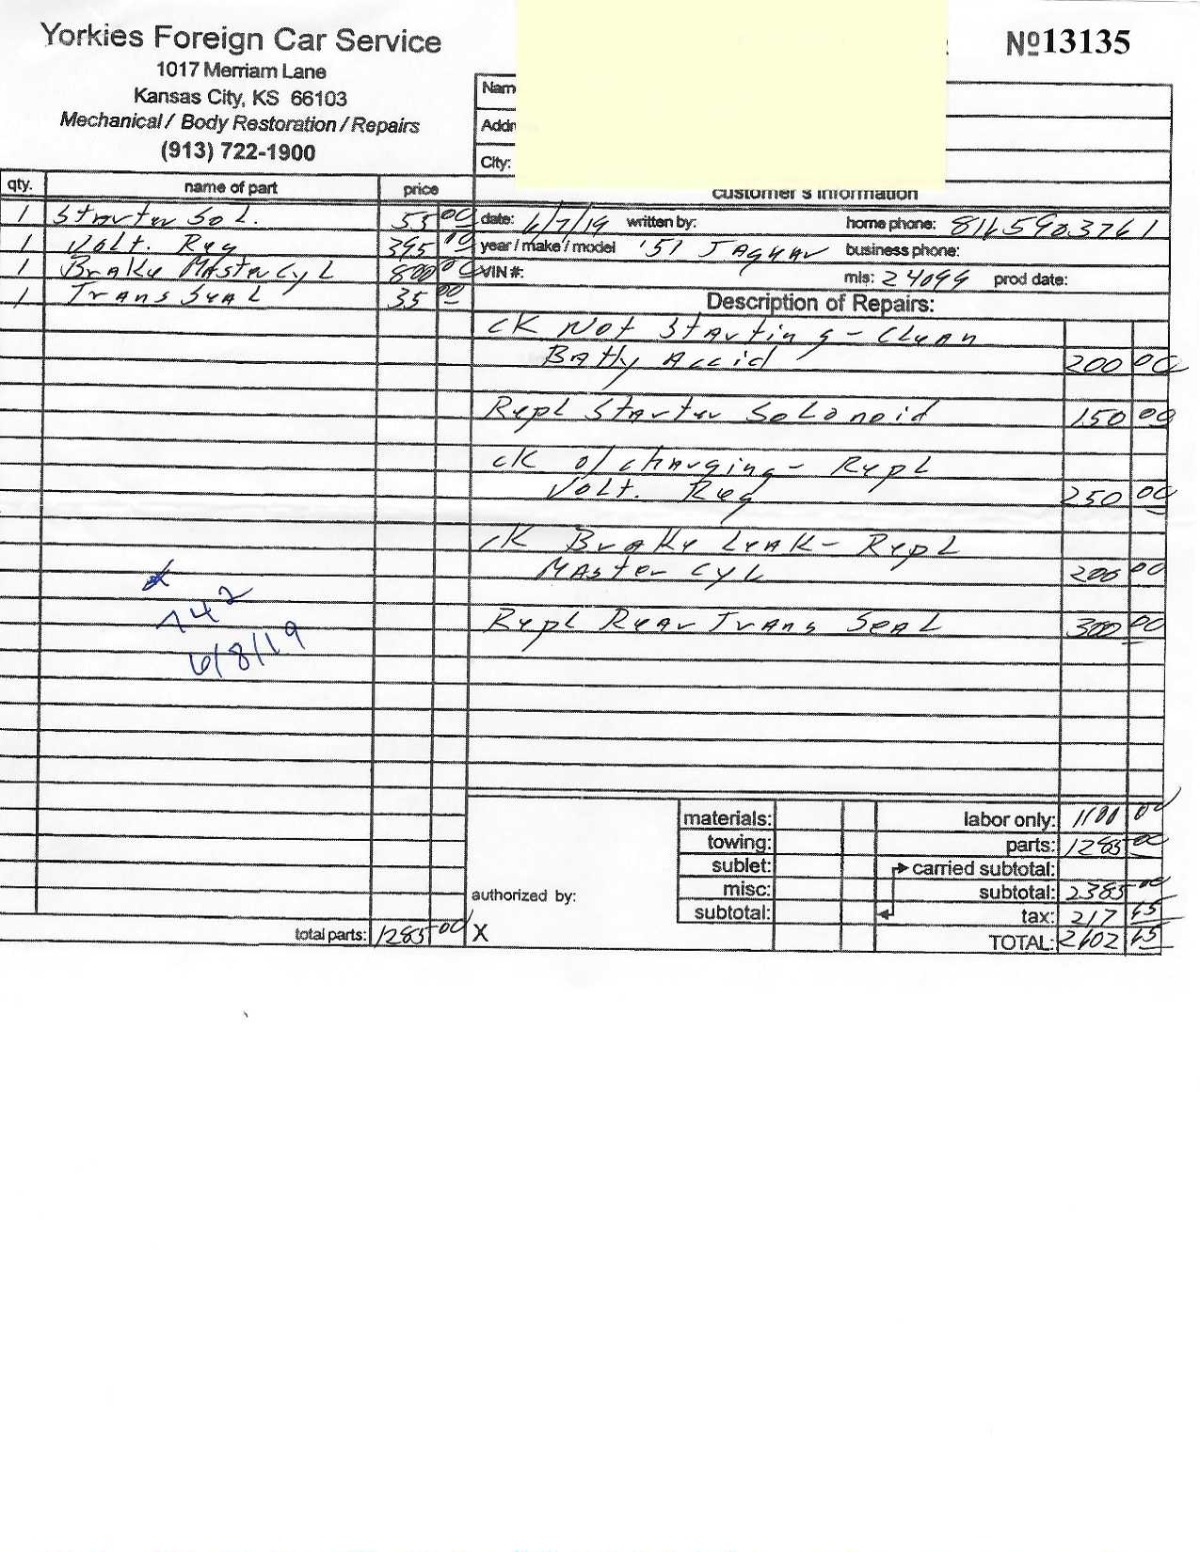 Yorkies Foreign Car Service
1017 Merriam Lane
Kansas City, KS 66103
Mechanical / Body Restoration / Repairs
(913) 722-1900
№13135
Nam
Addr
City:
customer's information
qty. name of part price
1 Starter Sol. 55 00
1 Volt. Reg 395 00
1 Brake Master Cyl 800 00
1 Trans Seal 35 00
date: 6/7/19 written by: home phone: 816 590 3761
year / make / model '51 Jaguar business phone:
VIN #: mls: 24099 prod date:
Description of Repairs:
CK Not Starting - Clean
Batty Accid 200 00
Repl Starter Solonoid 150 00
CK o/charging - Repl
Volt. Reg 250 00
CK Brake Leak - Repl
Master Cyl 200 00
Repl Rear Trans Seal 300 00
742
6/8/19
materials: labor only: 1100 00
towing: parts: 1285 00
sublet: carried subtotal:
misc: subtotal: 2385 00
subtotal: tax: 217 65
TOTAL: 2602 65
authorized by:
total parts: 1285 00 X